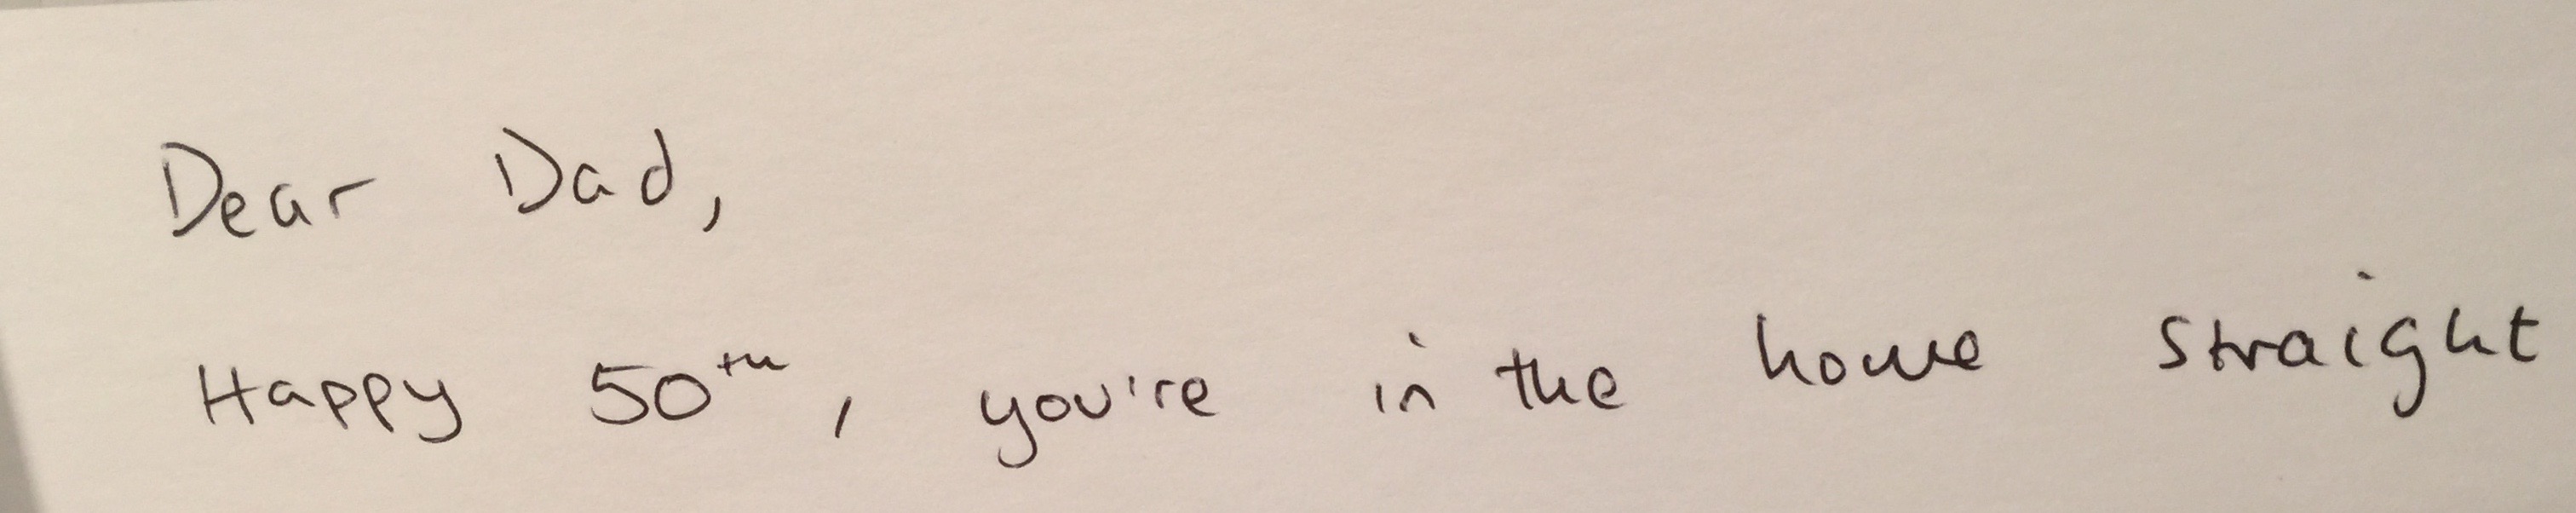 Dear Dad,
Happy 50th, you're in the home straight